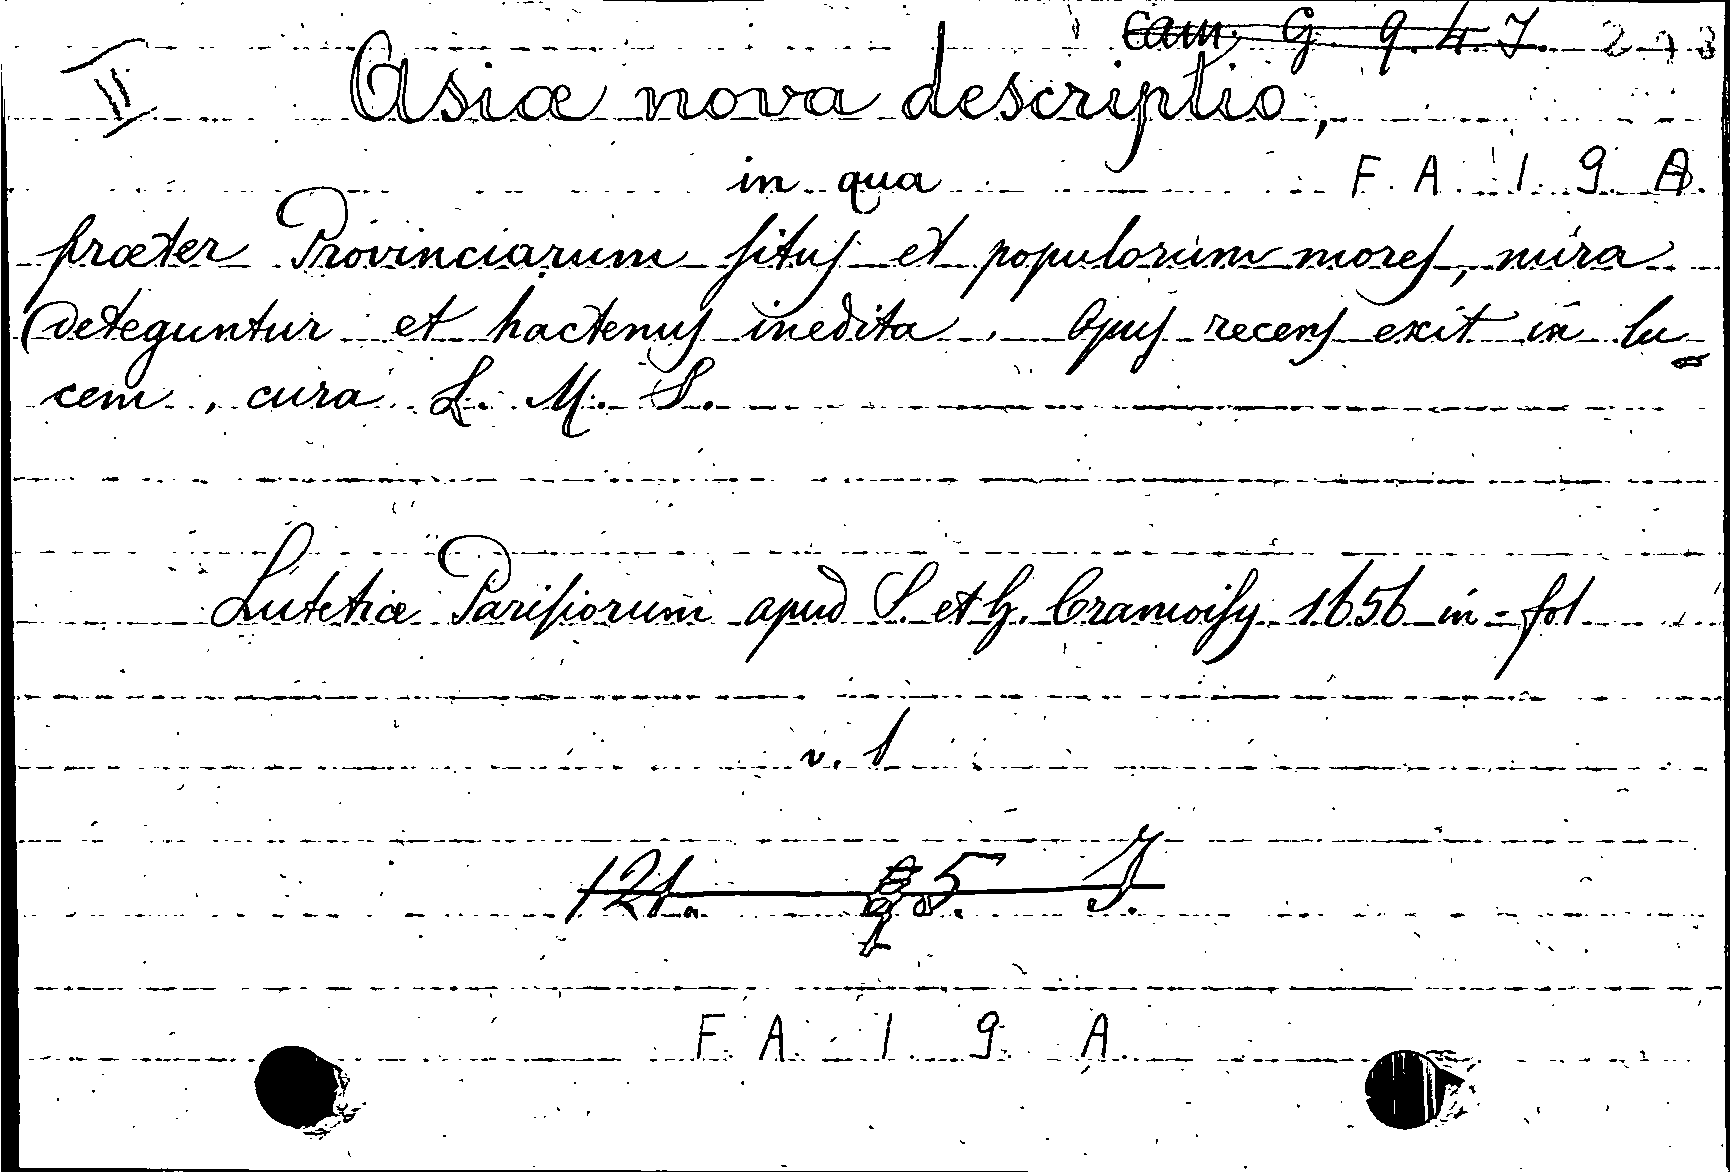 Cam. G. 9. 4. 7.
II Asiæ nova descriptio,
in qua F. A. 1 9. A.
præter Provinciarum situs et populorum mores, mira
deteguntur et hactenus inedita. Opus recens exit in lu=
cem, cura L. M. S.
Lutetiæ Parisiorum apud S. et G. Cramoisy 1656 in=fol
v. 1
121. 5. J.
F. A. 1 9. A.